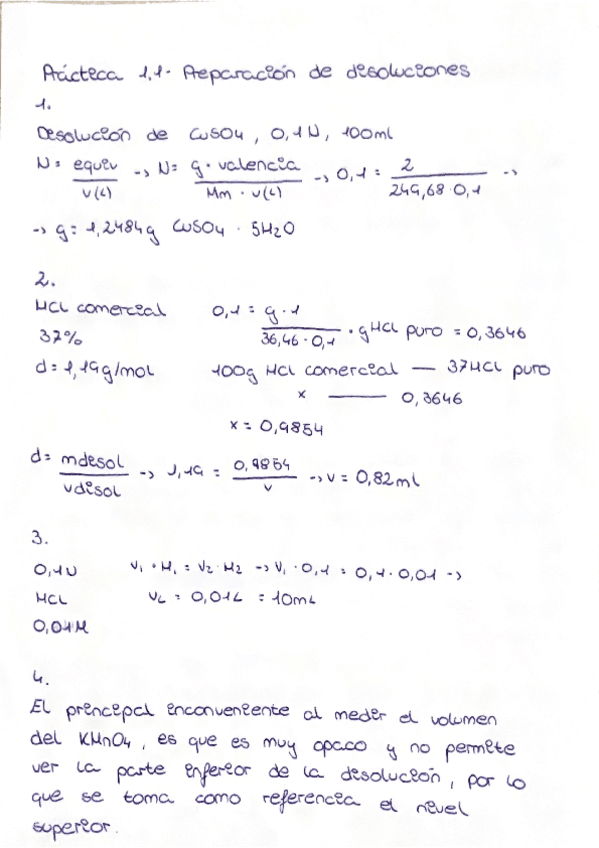 Práctica 1.1. Preparación de disoluciones
1.
Disolución de CuSO4, 0,1N, 100ml
N = equiv / V(L) -> N = g · valencia / Mm · V(L) -> 0,1 = 2 / 249,68 · 0,1 ->
-> g = 1,2484g CuSO4 · 5H2O
2.
HCl comercial 0,1 = g · 1 / 36,46 · 0,1 · gHCl puro = 0,3646
37%
d = 1,19g/mol 100g HCl comercial — 37HCl puro
x — 0,3646
x = 0,9854
d = mdisol / vdisol -> 1,19 = 0,9854 / v -> v = 0,82ml
3.
0,1N V1 · M1 = V2 · M2 -> V1 · 0,1 = 0,1 · 0,01 ->
HCl VL = 0,01L = 10mL
0,01M
4.
El principal inconveniente al medir el volumen
del KMnO4, es que es muy opaco y no permite
ver la parte inferior de la disolución, por lo
que se toma como referencia el nivel
superior.